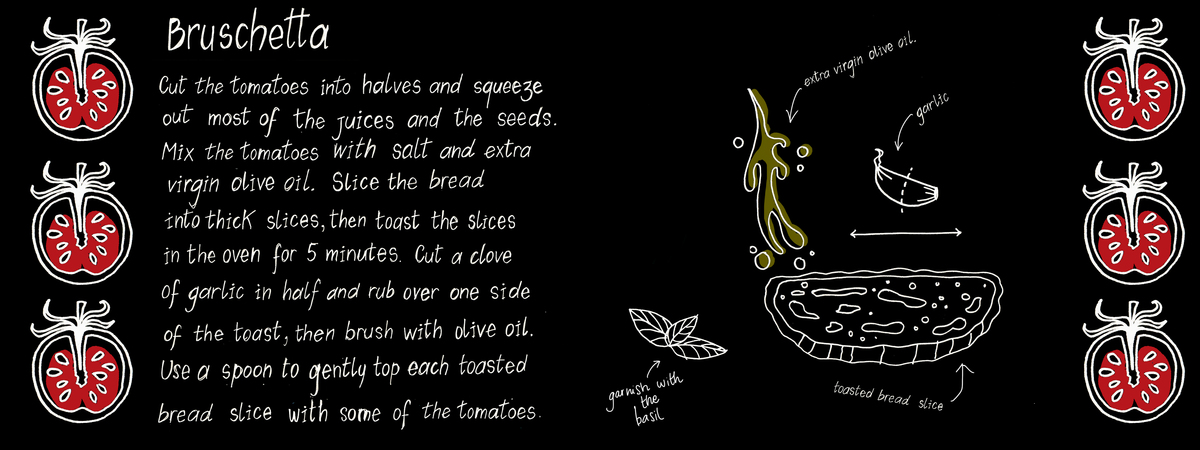 Bruschetta
Cut the tomatoes into halves and squeeze
out most of the juices and the seeds.
Mix the tomatoes with salt and extra
virgin olive oil. Slice the bread
into thick slices, then toast the slices
in the oven for 5 minutes. Cut a clove
of garlic in half and rub over one side
of the toast, then brush with olive oil.
Use a spoon to gently top each toasted
bread slice with some of the tomatoes.
extra virgin olive oil.
garlic
garnish with
the
basil
toasted bread slice